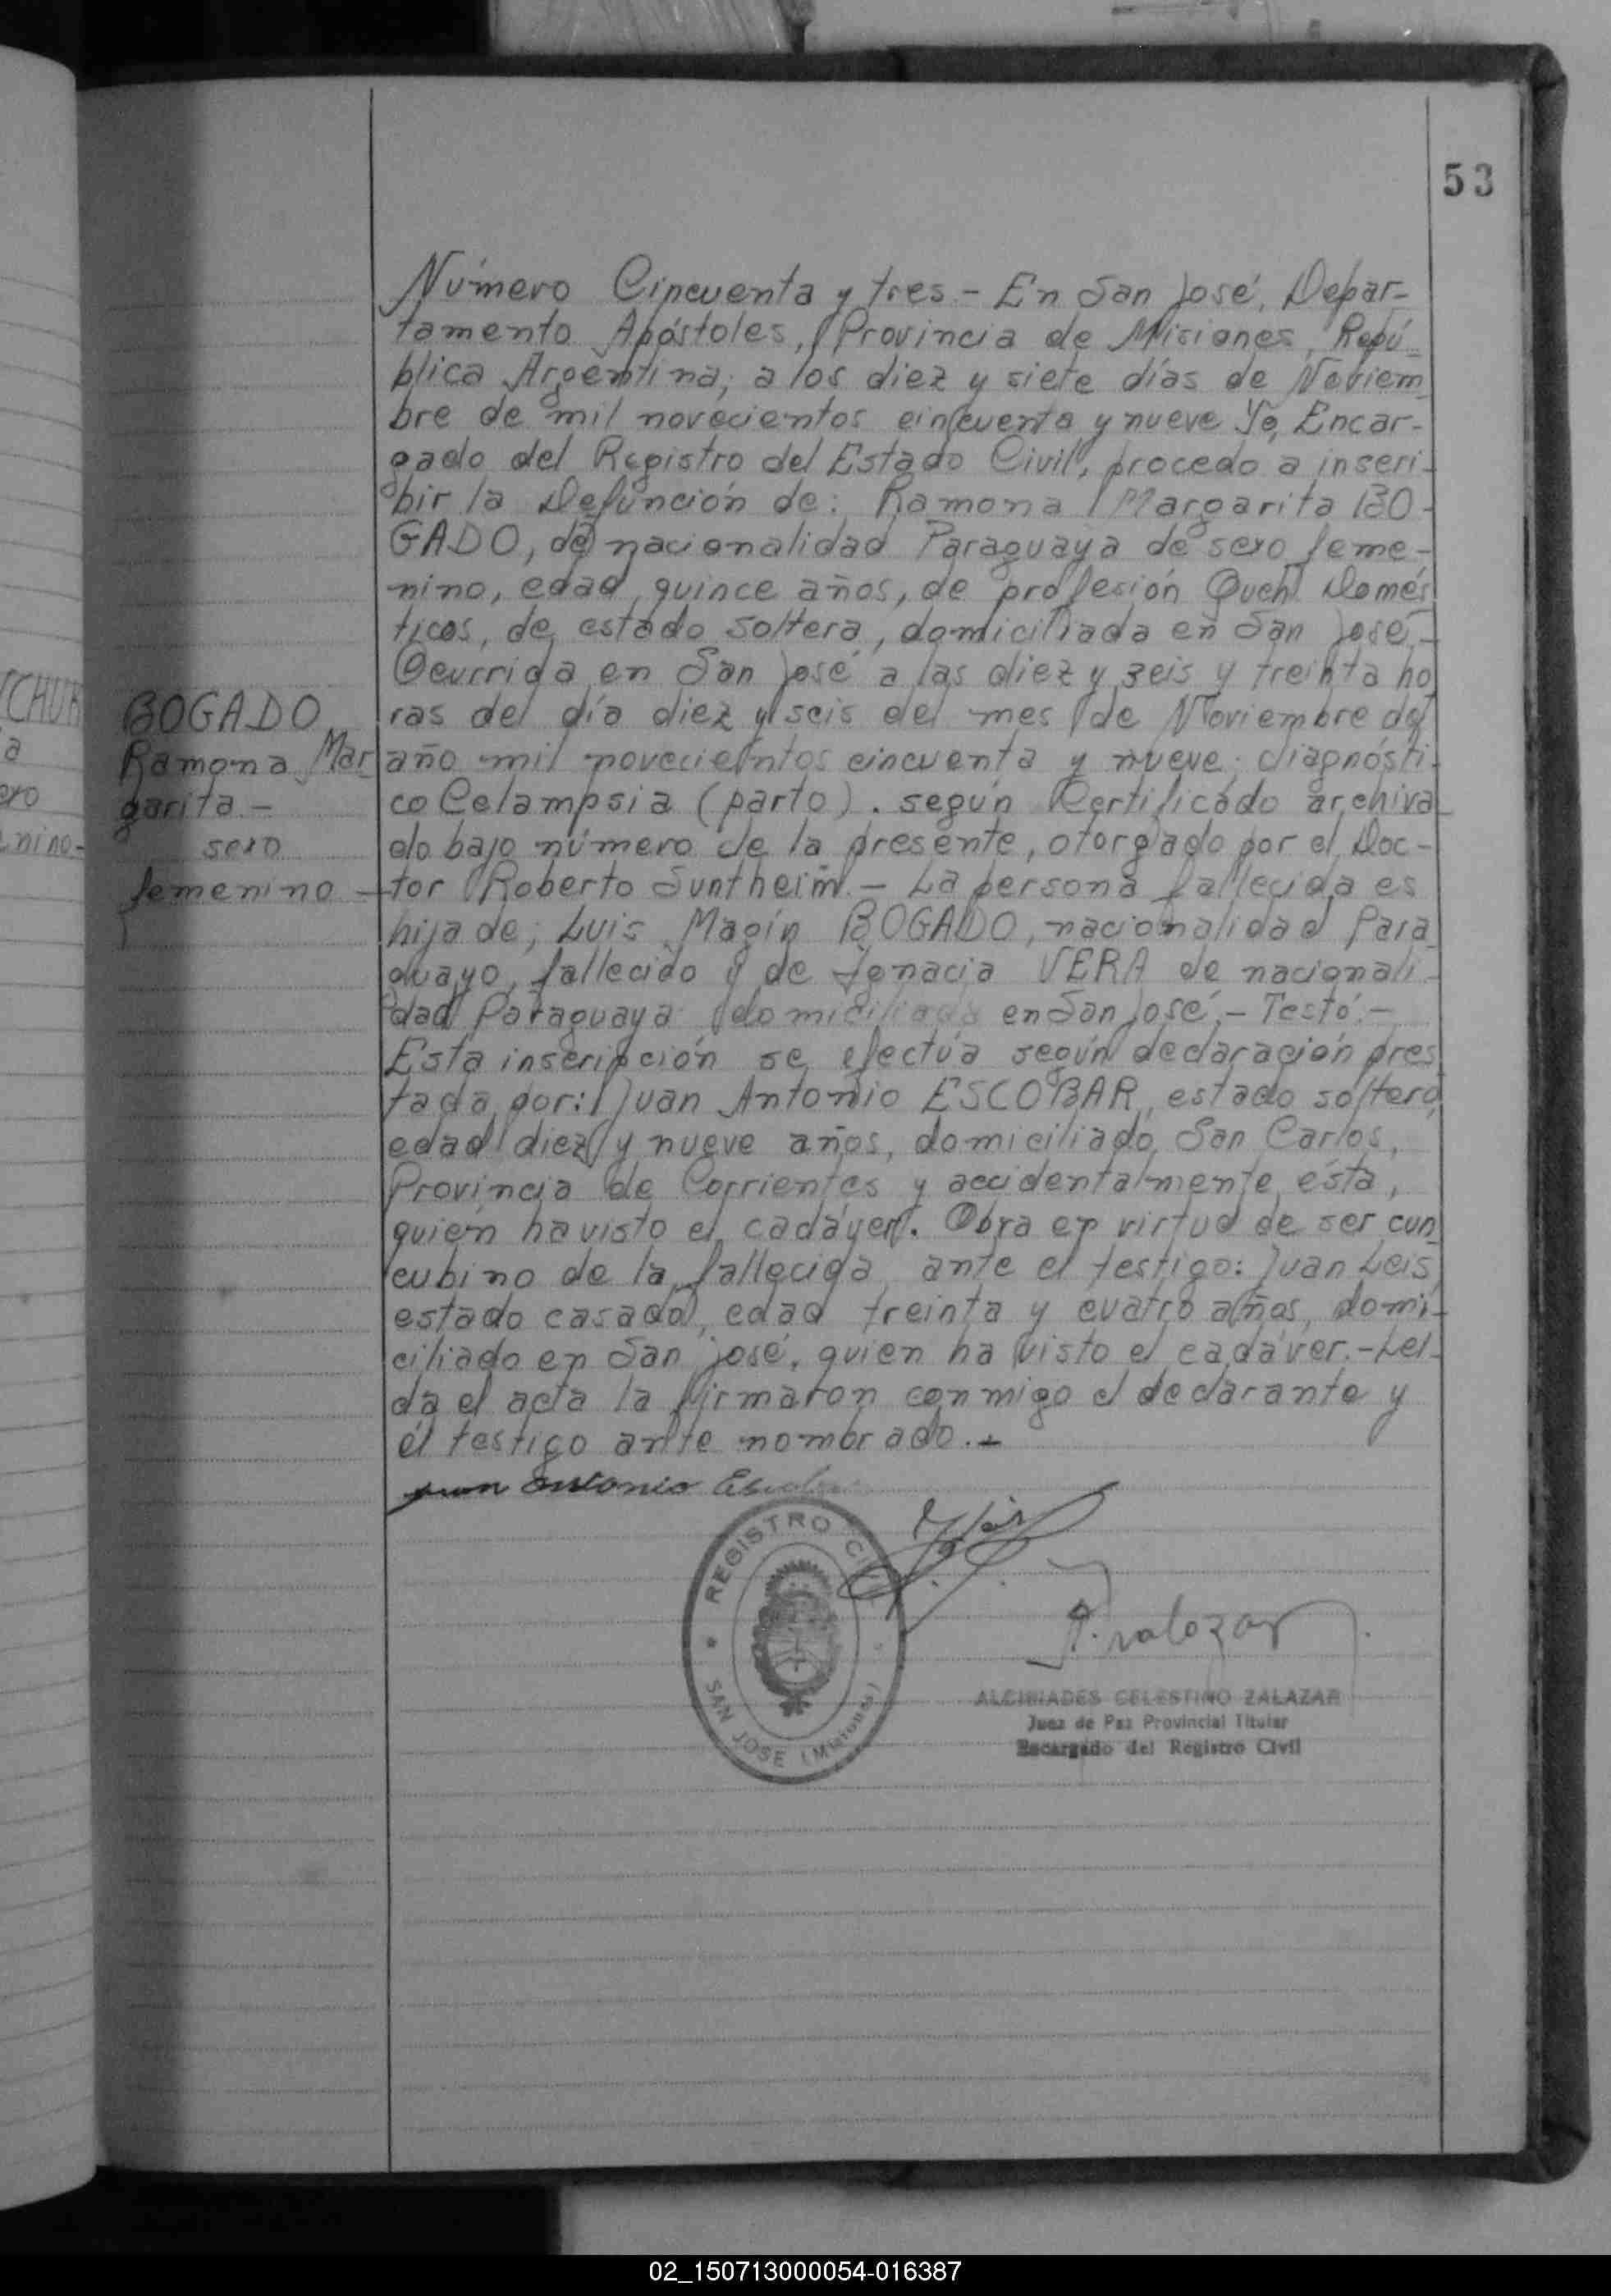 53
Número Cincuenta y tres - En San José, Depar-
tamento Apóstoles, Provincia de Misiones, Repú-
blica Argentina, a los diez y siete días de Noviem
bre de mil novecientos cincuenta y nueve Yo, Encar-
gado del Registro del Estado Civil, procedo a inscri-
bir la Defunción de: Ramona Margarita BO-
GADO, de nacionalidad Paraguaya de sexo feme-
nino, edad quince años, de profesión Queh. Domés
ticos, de estado soltera, domiciliada en San José.-
Ocurrida en San José a las diez y seis y treinta ho
ras del día diez y seis del mes de Noviembre del
año mil novecientos cincuenta y nueve; diagnósti-
co Celampsia (parto). según Certificado archiva
do bajo número de la presente, otorgado por el Doc-
tor Roberto Suntheim.- La persona fallecida es
hija de; Luis Magín BOGADO, nacionalidad Para
guayo, fallecido y de Ignacia VERA de nacionali-
dad Paraguaya domiciliada en San José.- Testó.-
Esta inscripción se efectúa según declaración pres
tada por: Juan Antonio ESCOBAR, estado soltero,
edad diez y nueve años, domiciliado San Carlos,
Provincia de Corrientes y accidentalmente ésta,
quien ha visto el cadáver. Obra en virtud de ser cun
cubino de la fallecida ante el testigo: Juan Leis,
estado casado, edad treinta y cuatro años, domi-
ciliado en San José, quien ha visto el cadáver.-Leí-
da el acta la firmaron conmigo el declarante y
él testigo ante nombrado.-
BOGADO
Ramona Mar
garita-
sexo
femenino-
TCHUK
a
exo
nino-
Juan Antonio Escobar
REGISTRO CIVIL
SAN JOSE (Misiones)
ALCIBIADES CELESTINO ZALAZAR
Juez de Paz Provincial Titular
Encargado del Registro Civil
02_150713000054-016387